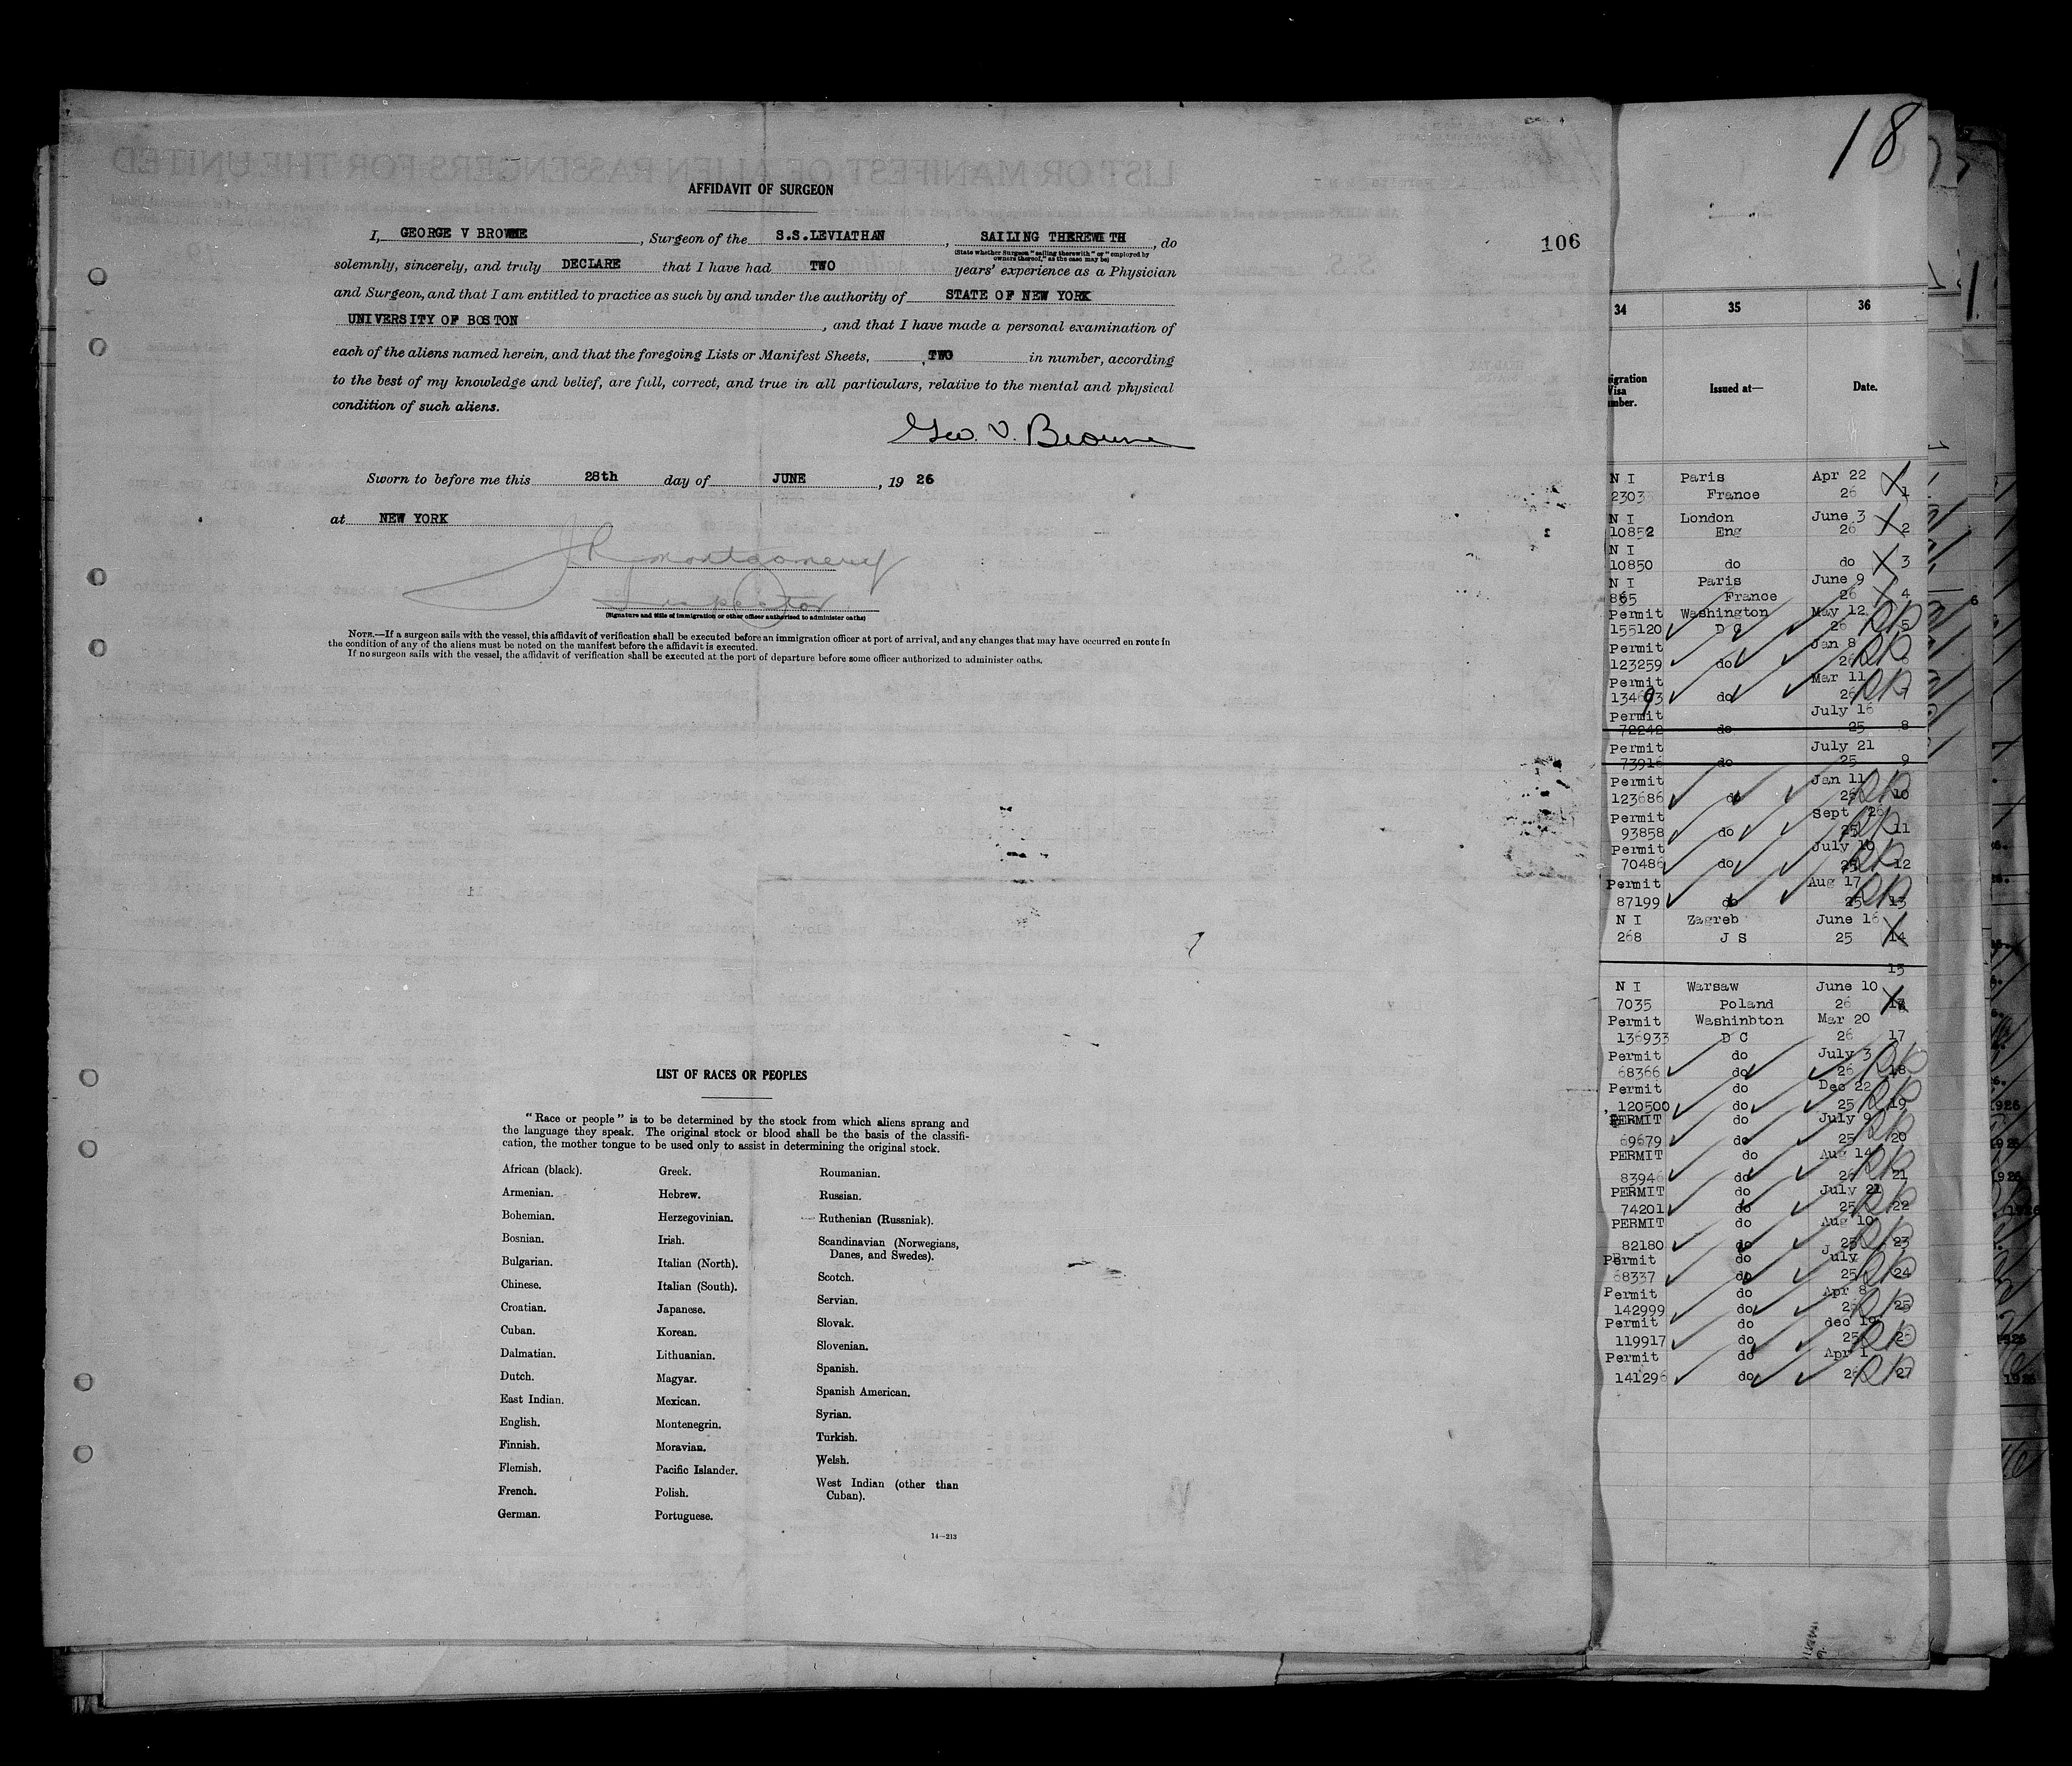 AFFIDAVIT OF SURGEON
I, GEORGE V BROWNE, Surgeon of the S.S.LEVIATHAN, SAILING THEREWITH, do
(State whether Surgeon "sailing therewith" or "employed by owners thereof," as the case may be)
solemnly, sincerely, and truly DECLARE that I have had TWO years' experience as a Physician
and Surgeon, and that I am entitled to practice as such by and under the authority of STATE OF NEW YORK
UNIVERSITY OF BOSTON, and that I have made a personal examination of
each of the aliens named herein, and that the foregoing Lists or Manifest Sheets, TWO in number, according
to the best of my knowledge and belief, are full, correct, and true in all particulars, relative to the mental and physical
condition of such aliens.
Geo. V. Browne
Sworn to before me this 28th day of JUNE, 19 26
at NEW YORK
J R Montgomery
Inspector
(Signature and title of immigration or other officer authorized to administer oaths)
NOTE.—If a surgeon sails with the vessel, this affidavit of verification shall be executed before an immigration officer at port of arrival, and any changes that may have occurred en route in
the condition of any of the aliens must be noted on the manifest before the affidavit is executed.
If no surgeon sails with the vessel, the affidavit of verification shall be executed at the port of departure before some officer authorized to administer oaths.
LIST OF RACES OR PEOPLES
"Race or people" is to be determined by the stock from which aliens sprang and
the language they speak. The original stock or blood shall be the basis of the classifi-
cation, the mother tongue to be used only to assist in determining the original stock.
African (black).
Armenian.
Bohemian.
Bosnian.
Bulgarian.
Chinese.
Croatian.
Cuban.
Dalmatian.
Dutch.
East Indian.
English.
Finnish.
Flemish.
French.
German.
Greek.
Hebrew.
Herzegovinian.
Irish.
Italian (North).
Italian (South).
Japanese.
Korean.
Lithuanian.
Magyar.
Mexican.
Montenegrin.
Moravian.
Pacific Islander.
Polish.
Portuguese.
Roumanian.
Russian.
Ruthenian (Russniak).
Scandinavian (Norwegians,
Danes, and Swedes).
Scotch.
Servian.
Slovak.
Slovenian.
Spanish.
Spanish American.
Syrian.
Turkish.
Welsh.
West Indian (other than
Cuban).
14—213
106
18
34 35 36
Issued at— Date.
N I Paris Apr 22
2303 France 26 1
N I London June 3
10852 Eng 26 2
N I
10850 do do 3
N I Paris June 9
865 France 26 4
Permit Washington May 12
155120 D C 26 5
Permit Jan 8
123259 do 26 6
Permit Mar 11
do 26 7
Permit July 16
72242 do 25 8
Permit July 21
73916 do 25 9
Permit Jan 11
123686 do 26 10
Permit Sept 26
93858 do 25 11
Permit July 10
70486 do 25 12
Permit Aug 17
87199 do 25 13
N I Zagreb June 16
268 J S 25 14
15
N I Warsaw June 10
7035 Poland 26
Permit Washinbton Mar 20
136933 D C 26 17
Permit do July 3
68366 do 26 18
Permit do Dec 22
120500 do 25 19
PERMIT do July 9
69679 do 25 20
PERMIT do Aug 14
83946 do 26 21
PERMIT do July 21
74201 do 25 22
PERMIT do Aug 10
82180 do 25 23
Permit do July
68337 do 25 24
Permit do Apr 8
142999 do 26 25
Permit do dec 19
119917 do 25 26
Permit do Apr 1
141296 do 26 27